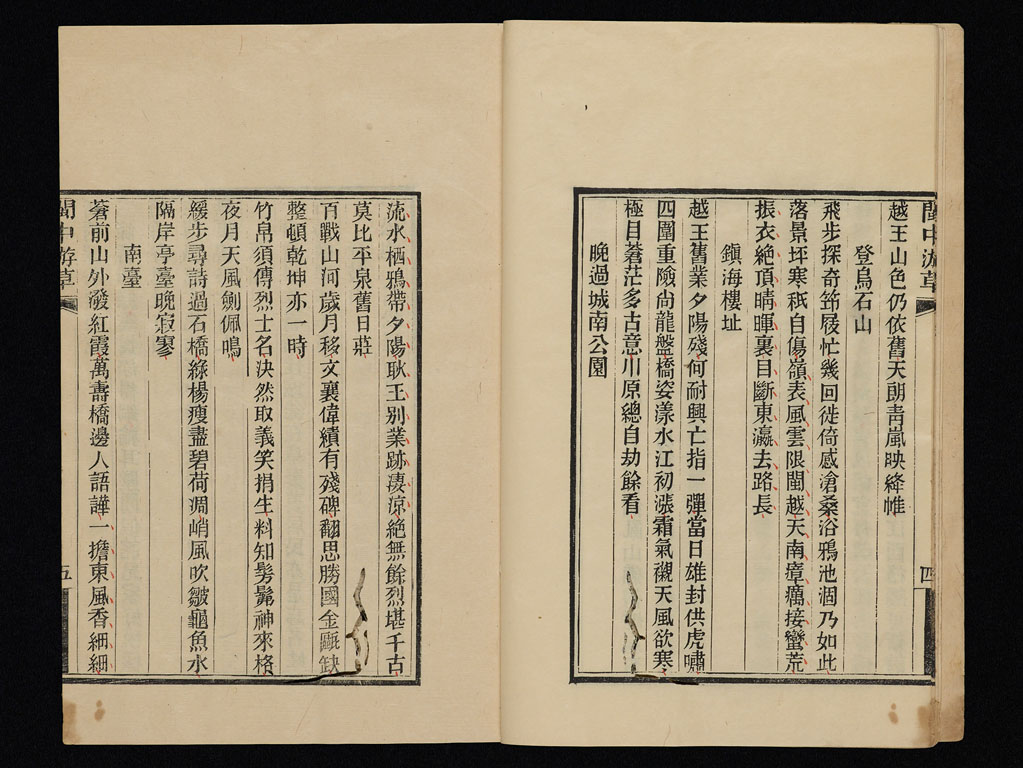 閩中游草
四
越王山色仍依舊天朗青嵐映絳帷
登烏石山
飛步探奇笻屐忙幾回徙倚感滄桑浴鴉池涸乃如此
落景坪寒秪自傷嶺表風雲限閩越天南瘴癘接蠻荒
振衣絶頂晴暉裏目斷東瀛去路長
鎮海樓址
越王舊業夕陽殘何耐興亡指一彈當日雄封供虎嘯
四圍重險尙龍盤橋姿漾水江初漲霜氣襯天風欲寒
極目蒼茫多古意川原總自劫餘看
晚過城南公園
流水栖鴉帶夕陽耿王别業跡凄涼絶無餘烈堪千古
莫比平泉舊日莊
百戰山河歲月移文襄偉績有殘碑翻思勝國金甌缺
整頓乾坤亦一時
竹帛須傳烈士名決然取義笑捐生料知髣髴神來格
夜月天風劍佩鳴
緩步尋詩過石橋綠楊瘦盡碧荷凋峭風吹皺龜魚水
隔岸亭臺晚寂寥
南臺
蒼前山外潑紅霞萬壽橋邊人語譁一擔東風香細細
閩中游草
五